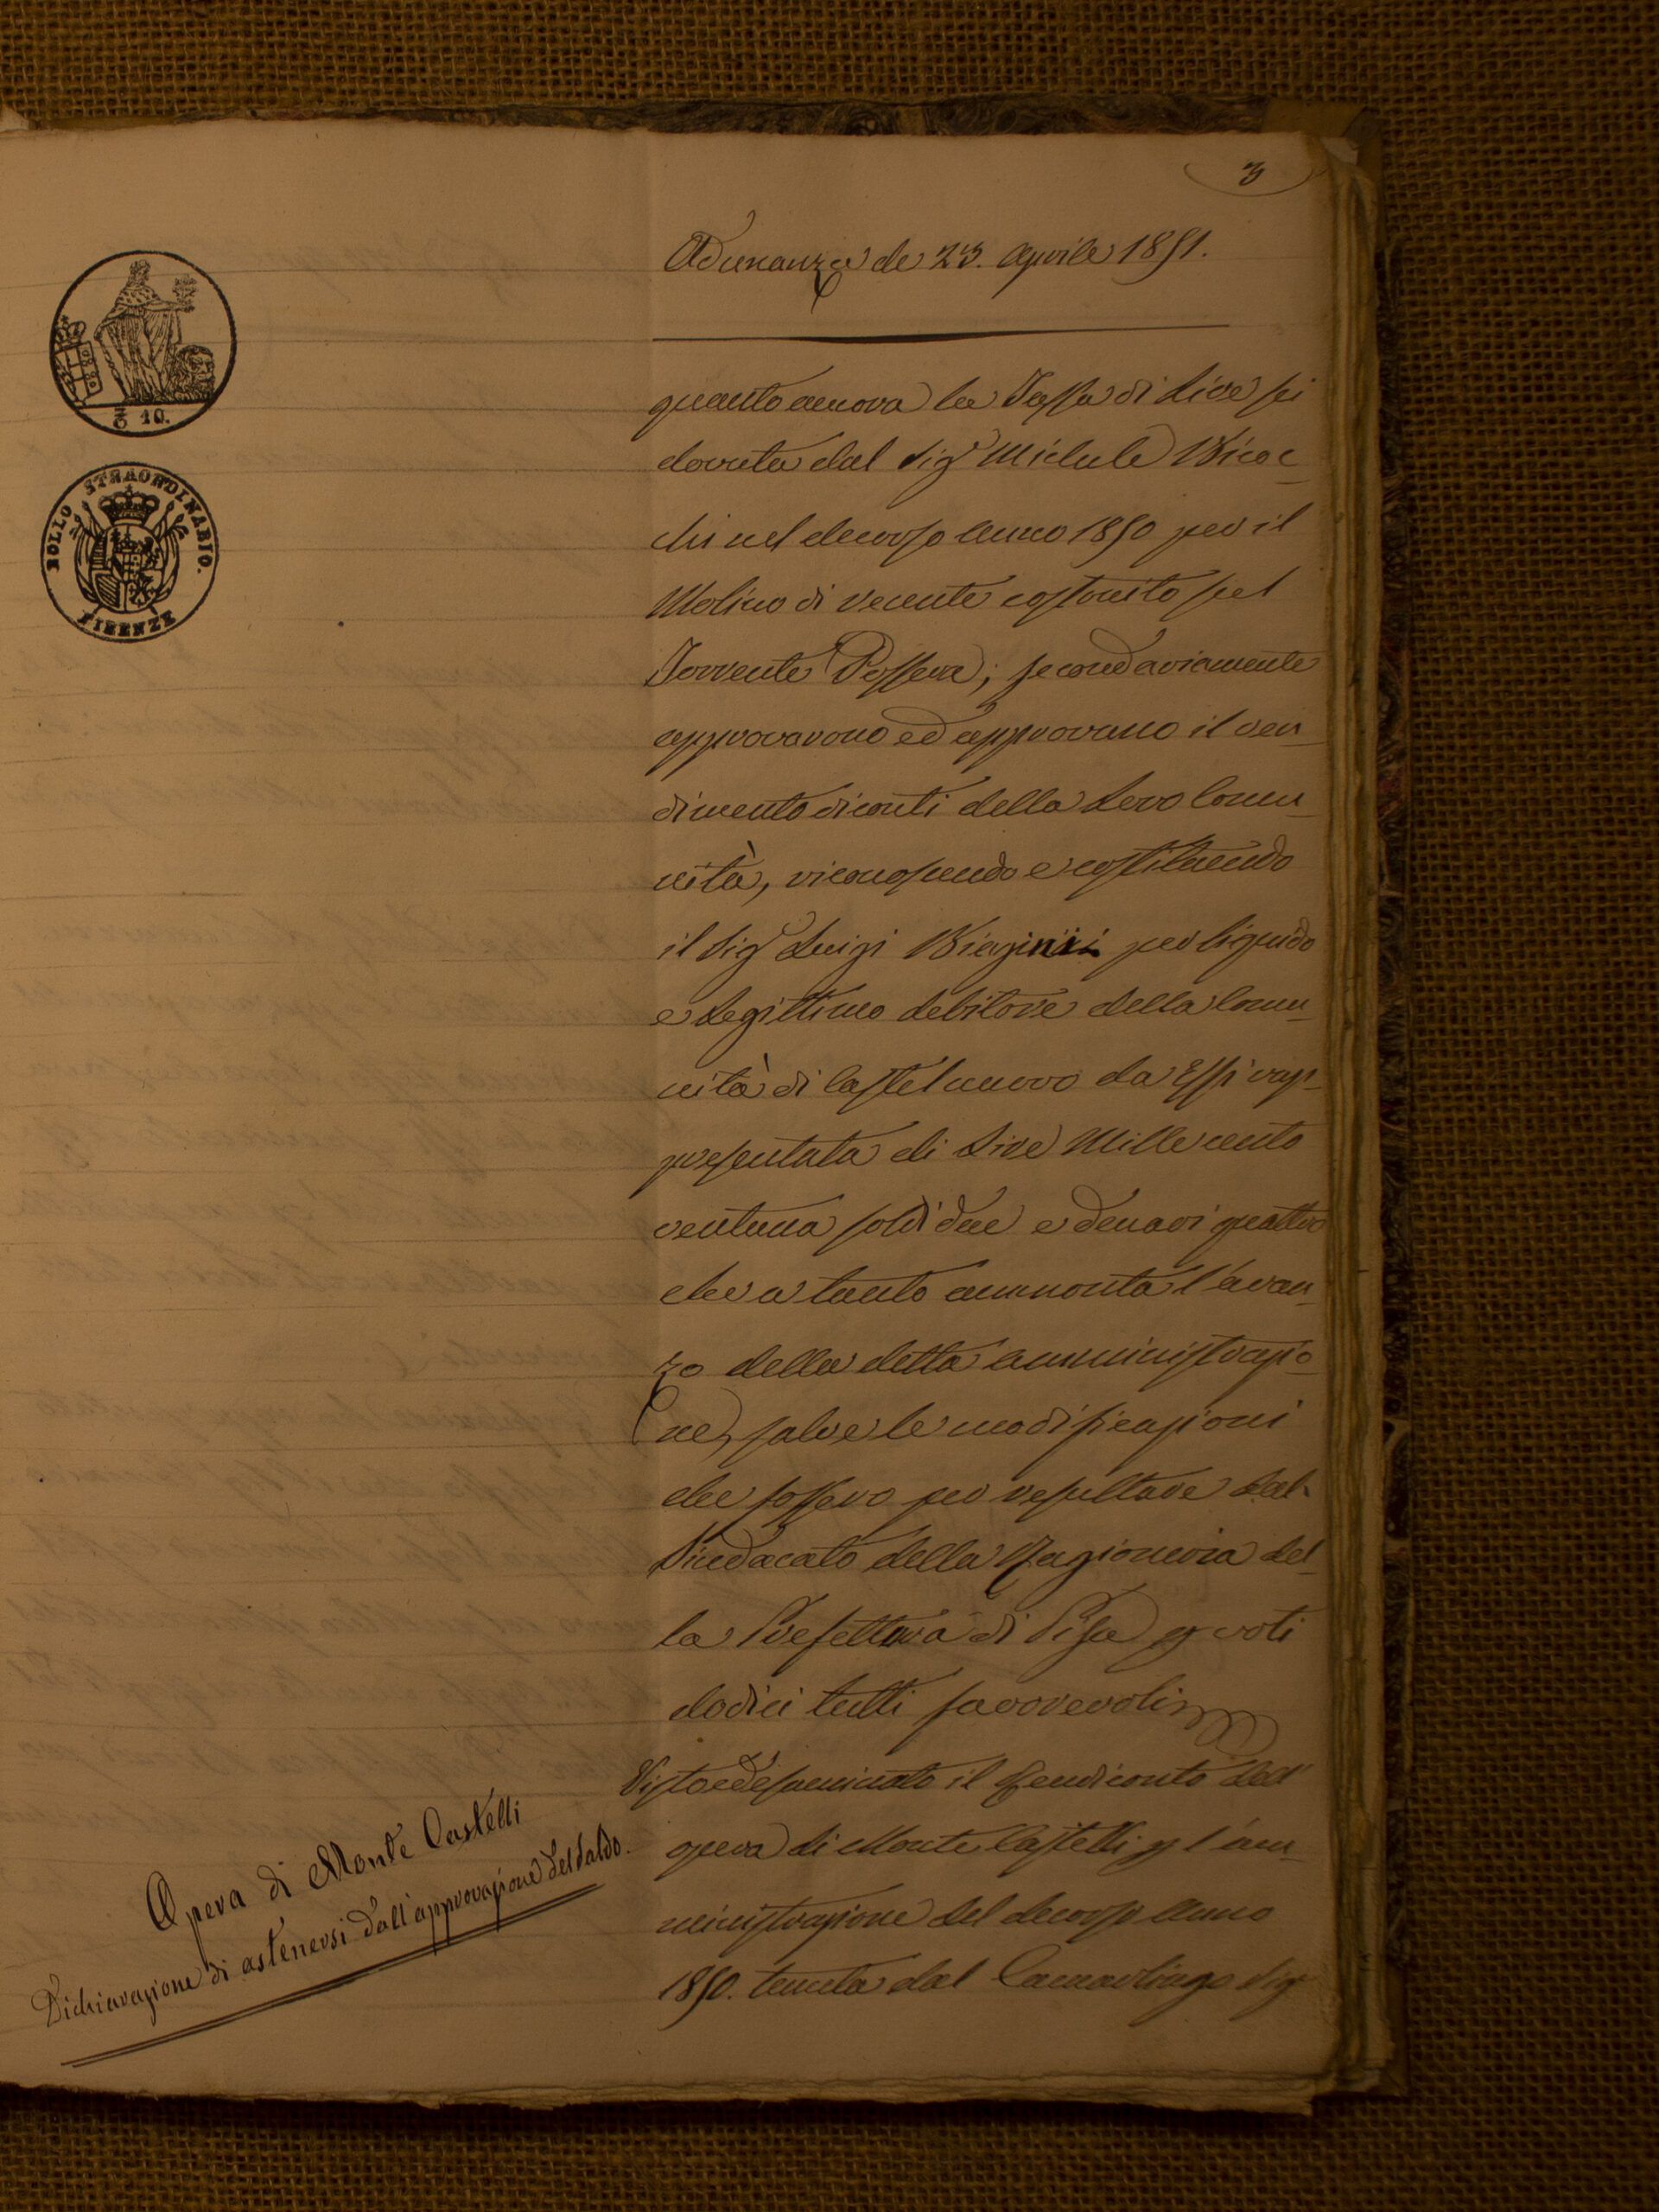 3
Adunanza de 23. Aprile 1851.
10.
BOLLO STRAORDINARIO.
FIRENZE
quanto ancora la Tassa di Lire sei
dovuta dal Sigr Michele Bicoc_
chi nel decorso anno 1850 per il
Molino di recente costruito sul
Torrente Possera; secondariamente
approvarono ed approvano il ren_
dimento di conti della Loro Comu_
nità, riconoscendo e costituendo
il Sigr Luigi Biagini per liquido
e legittimo debitore della Comu_
nità di Castelnuovo da Essi rap_
presentata di Lire Millecento
ventuna soldi due e denari quattro
che a tanto ammonta l'avan_
zo della detta amministrazio_
ne, salve le modificazioni
che fossero per resultare dal
Sindacato della Ragioneria del_
la Prefettura di Pisa p voti
dodici tutti favorevoli
Visto ed esaminato il Rendiconto dell'
opera di Monte Castelli p l'am_
ministrazione del decorso anno
1850. tenuta dal Camarlingo Sigr
Opera di Monte Castelli
Dichiarazione di astenersi dall'approvazione del Saldo.